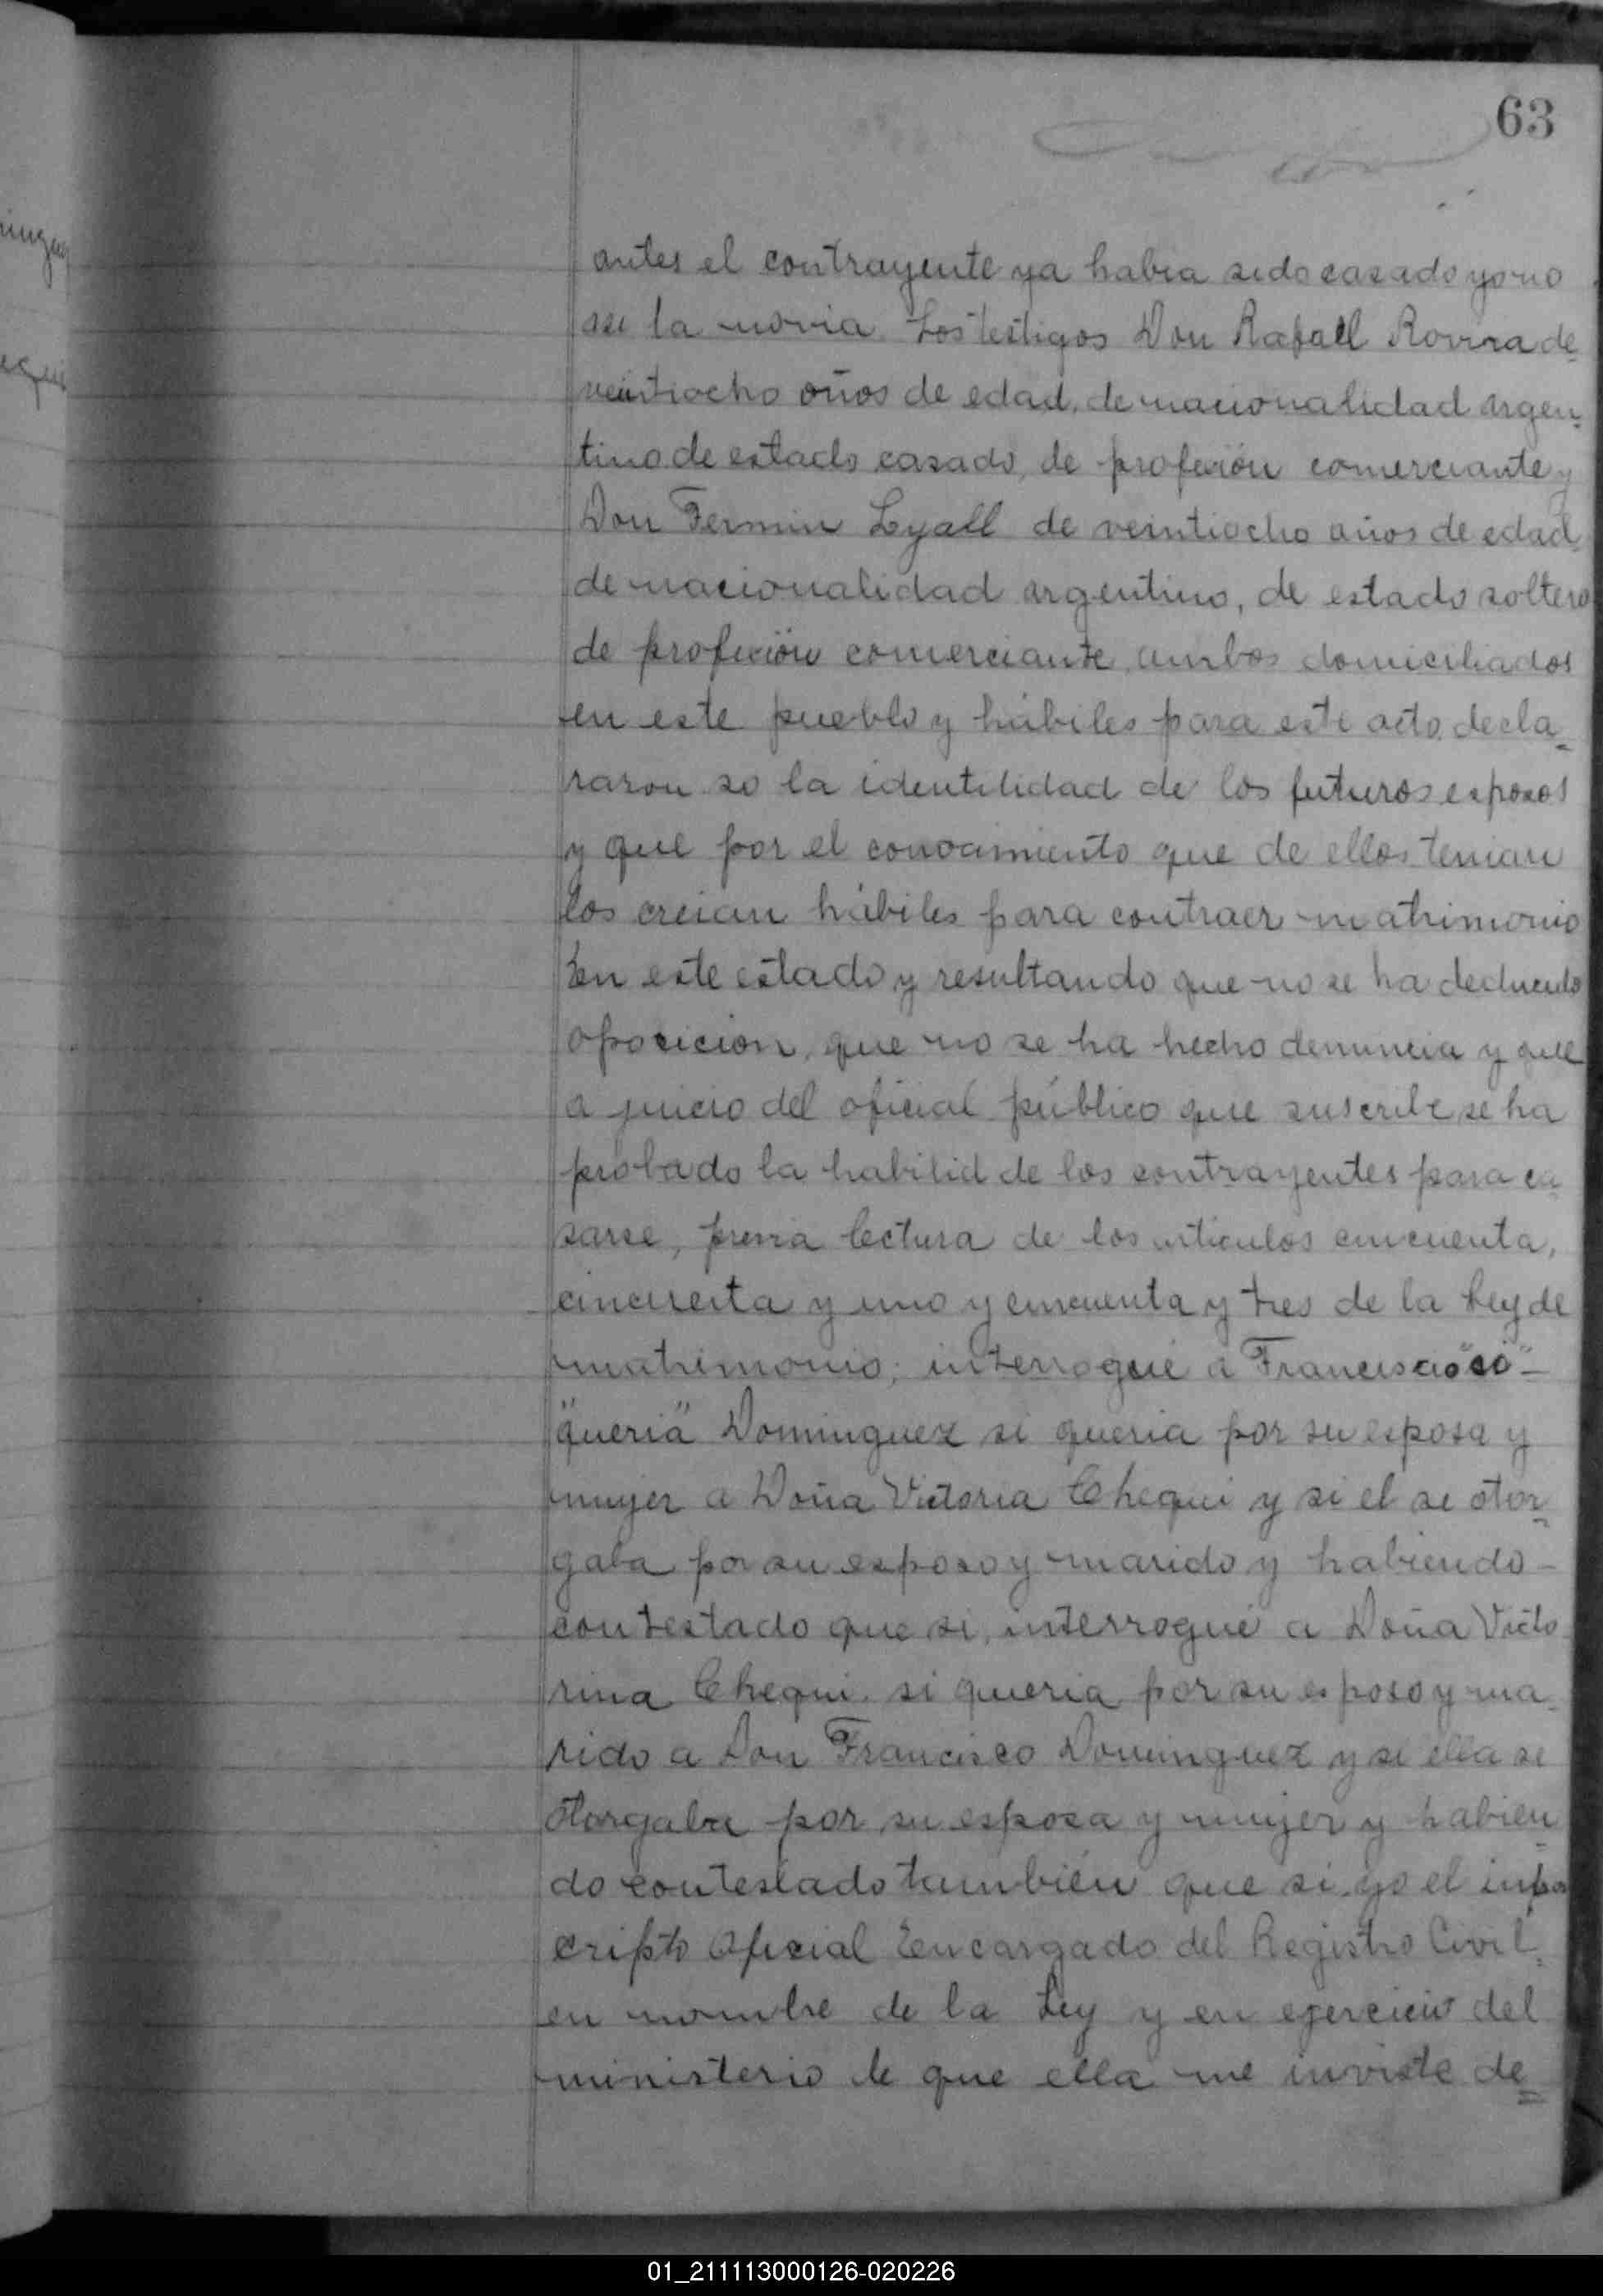 63
antes el contrayente ya habia sido casado y no
asi la novia. Los testigos Don Rafael Rovira de
veintiocho años de edad, de nacionalidad argen-
tino de estado casado, de profesión comerciante y
Don Fermin Lyall de veintiocho años de edad
de nacionalidad argentino, de estado soltero
de profesión comerciante, ambos domiciliados
en este pueblo y hábiles para este acto, decla-
raron so la identilidad de los futuros esposos
y que por el conocimiento que de ellos tenian
los creian hábiles para contraer matrimonio
En este estado, y resultando que no se ha deducido
oposicion, que no se ha hecho denuncia y que
a juicio del oficial público que suscribe, se ha
probado la habilid de los contrayentes para ca
sarse, previa lectura de los articulos cincuenta,
cincuenta y uno y cincuenta y tres de la Ley de
matrimonio; interrogué a Francisco "si" -
"queria" Dominguez si queria por su esposa y
mujer a Doña Victoria Chequi y si el se otor-
gaba por su esposo y marido y habiendo -
contestado que si, interrogué a Doña Victo
rina Chequi si queria por su esposo y ma-
rido a Don Francisco Dominguez y si ella se
otorgaba por su esposa y mujer y habien-
do contestado también que si, yo el
cripto Oficial Encargado del Registro Civil,
en nombre de la Ley y en ejercicio del
ministerio de que ella me inviste de
01_211113000126-020226